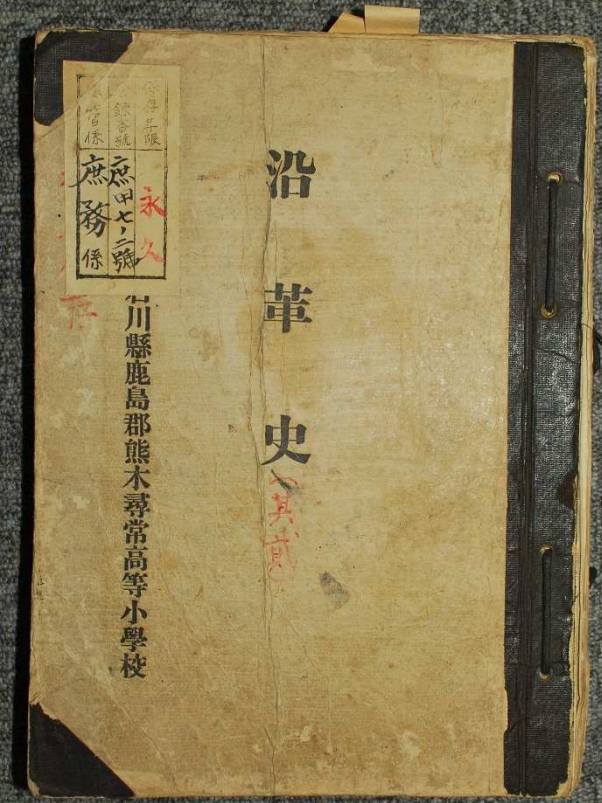 沿革史
(其貳)
保存年限
永久
登錄番號
庶甲七ノ二號
主管係
庶務係
石川縣鹿島郡熊木尋常高等小學校